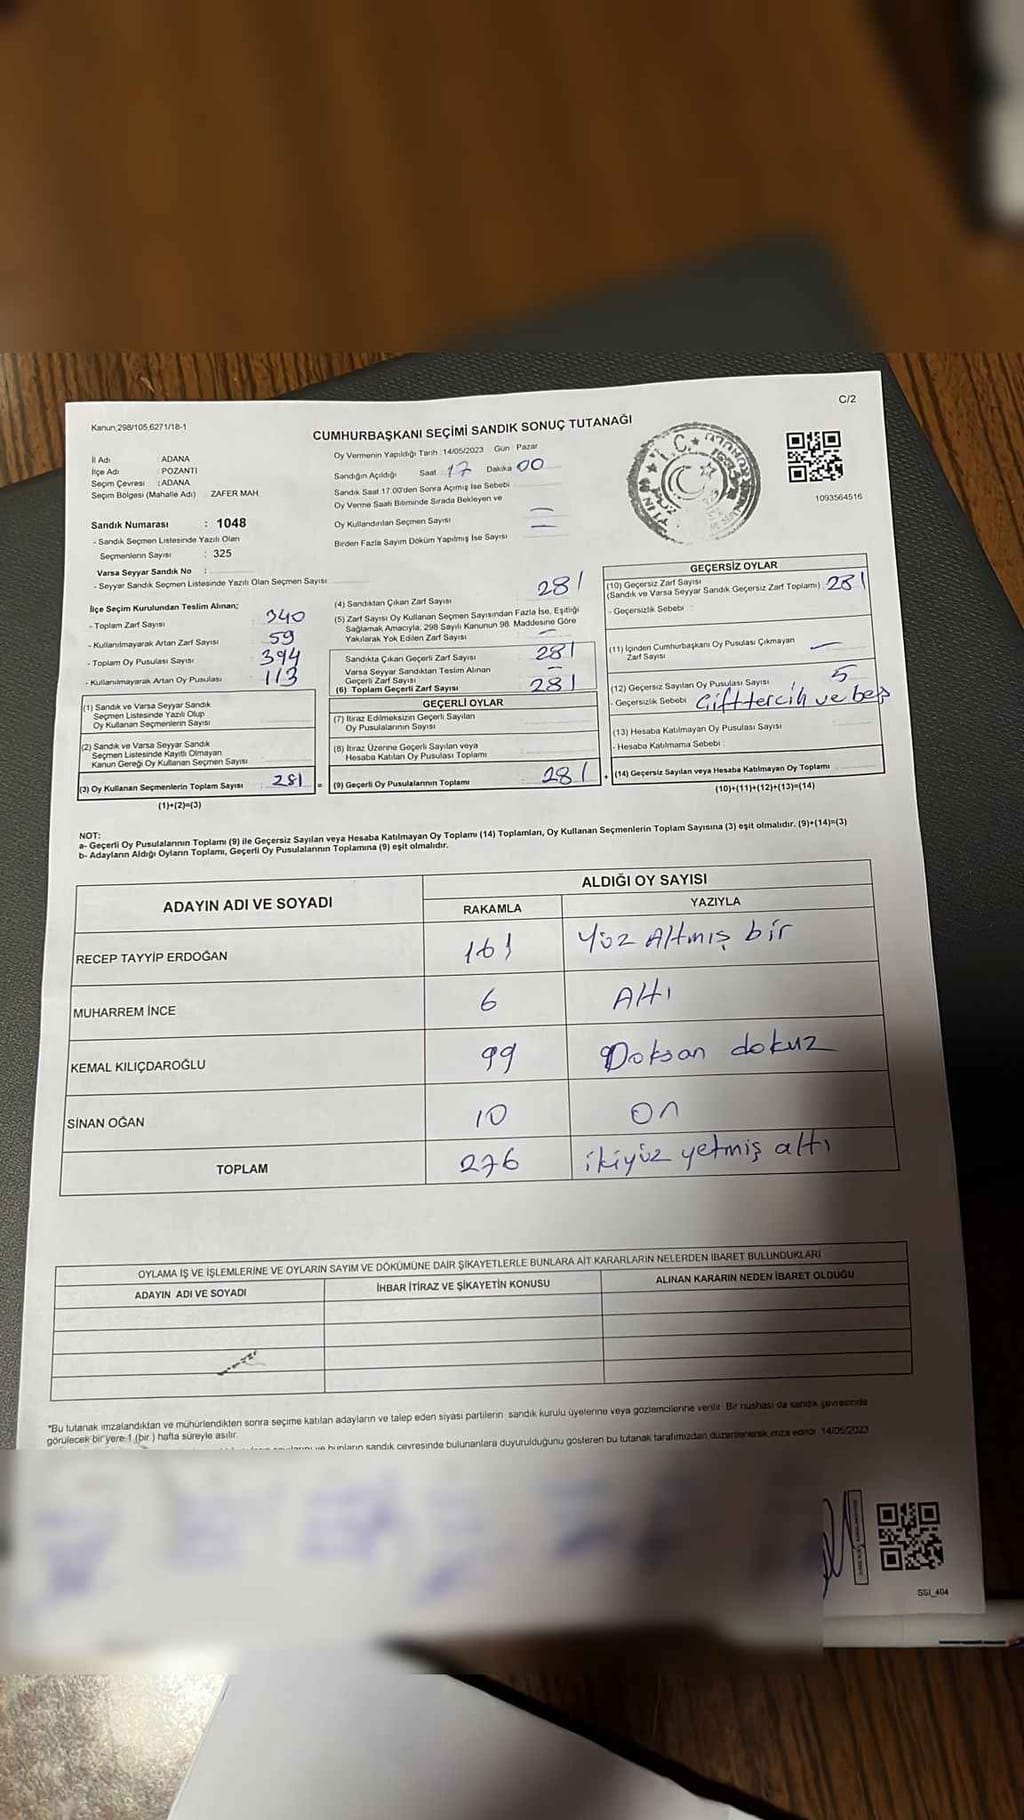 C/2
Kanun,298/105,6271/18-1
CUMHURBAŞKANI SEÇİMİ SANDIK SONUÇ TUTANAĞI
İl Adı : ADANA
İlçe Adı : POZANTI
Seçim Çevresi : ADANA
Seçim Bölgesi (Mahalle Adı) ZAFER MAH
Sandık Numarası : 1048
- Sandık Seçmen Listesinde Yazılı Olan
Seçmenlerin Sayısı : 325
Varsa Seyyar Sandık No :
- Seyyar Sandık Seçmen Listesinde Yazılı Olan Seçmen Sayısı
Oy Vermenin Yapıldığı Tarih : 14/05/2023 Gün : Pazar
Sandığın Açıldığı Saat 17 Dakika 00
Sandık Saat 17.00'den Sonra Açımış İse Sebebi
Oy Verme Saati Bitiminde Sırada Bekleyen ve
Oy Kullandırılan Seçmen Sayısı
Birden Fazla Sayım Döküm Yapılmış İse Sayısı
1093564516
İlçe Seçim Kurulundan Teslim Alınan;
- Toplam Zarf Sayısı 340
- Kullanılmayarak Artan Zarf Sayısı 59
- Toplam Oy Pusulası Sayısı 394
- Kullanılmayarak Artan Oy Pusulası 113
(1) Sandık ve Varsa Seyyar Sandık
Seçmen Listesinde Yazılı Olup
Oy Kullanan Seçmenlerin Sayısı
(2) Sandık ve Varsa Seyyar Sandık
Seçmen Listesinde Kayıtlı Olmayan
Kanun Gereği Oy Kullanan Seçmen Sayısı
(3) Oy Kullanan Seçmenlerin Toplam Sayısı 281 =
(1)+(2)=(3)
(4) Sandıktan Çıkan Zarf Sayısı 281
(5) Zarf Sayısı Oy Kullanan Seçmen Sayısından Fazla İse, Eşitliği
Sağlamak Amacıyla, 298 Sayılı Kanunun 98. Maddesine Göre
Yakılarak Yok Edilen Zarf Sayısı —
Sandıkta Çıkan Geçerli Zarf Sayısı 281
Varsa Seyyar Sandıktan Teslim Alınan
Geçerli Zarf Sayısı —
(6) Toplam Geçerli Zarf Sayısı 281
GEÇERLİ OYLAR
(7) İtiraz Edilmeksizin Geçerli Sayılan
Oy Pusulalarının Sayısı
(8) İtiraz Üzerine Geçerli Sayılan veya
Hesaba Katılan Oy Pusulası Toplamı
(9) Geçerli Oy Pusulalarının Toplamı 281 +
GEÇERSİZ OYLAR
(10) Geçersiz Zarf Sayısı
(Sandık ve Varsa Seyyar Sandık Geçersiz Zarf Toplamı) 281
- Geçersizlik Sebebi
(11) İçinden Cumhurbaşkanı Oy Pusulası Çıkmayan
Zarf Sayısı —
(12) Geçersiz Sayılan Oy Pusulası Sayısı 5
- Geçersizlik Sebebi Çift tercih ve beş
(13) Hesaba Katılmayan Oy Pusulası Sayısı
- Hesaba Katılmama Sebebi
(14) Geçersiz Sayılan veya Hesaba Katılmayan Oy Toplamı
(10)+(11)+(12)+(13)=(14)
NOT:
a- Geçerli Oy Pusulalarının Toplamı (9) ile Geçersiz Sayılan veya Hesaba Katılmayan Oy Toplamı (14) Toplamları, Oy Kullanan Seçmenlerin Toplam Sayısına (3) eşit olmalıdır. (9)+(14)=(3)
b- Adayların Aldığı Oyların Toplamı, Geçerli Oy Pusulalarının Toplamına (9) eşit olmalıdır.
ADAYIN ADI VE SOYADI ALDIĞI OY SAYISI
RAKAMLA YAZIYLA
RECEP TAYYİP ERDOĞAN 161 Yüz Altmış bir
MUHARREM İNCE 6 Altı
KEMAL KILIÇDAROĞLU 99 Doksan dokuz
SİNAN OĞAN 10 on
TOPLAM 276 ikiyüz yetmiş altı
OYLAMA İŞ VE İŞLEMLERİNE VE OYLARIN SAYIM VE DÖKÜMÜNE DAİR ŞİKAYETLERLE BUNLARA AİT KARARLARIN NELERDEN İBARET BULUNDUKLARI
ADAYIN ADI VE SOYADI İHBAR İTİRAZ VE ŞİKAYETİN KONUSU ALINAN KARARIN NEDEN İBARET OLDUĞU
*Bu tutanak imzalandıktan ve mühürlendikten sonra seçime katılan adayların ve talep eden siyasi partilerin sandık kurulu üyelerine veya gözlemcilerine verilir. Bir nüshası da sandık çevresinde
görülecek bir yere 1 (bir ) hafta süreyle asılır.
ve bunların sandık çevresinde bulunanlara duyurulduğunu gösteren bu tutanak tarafımızdan düzenlenerek imza edildi 14/05/2023
SSI_404